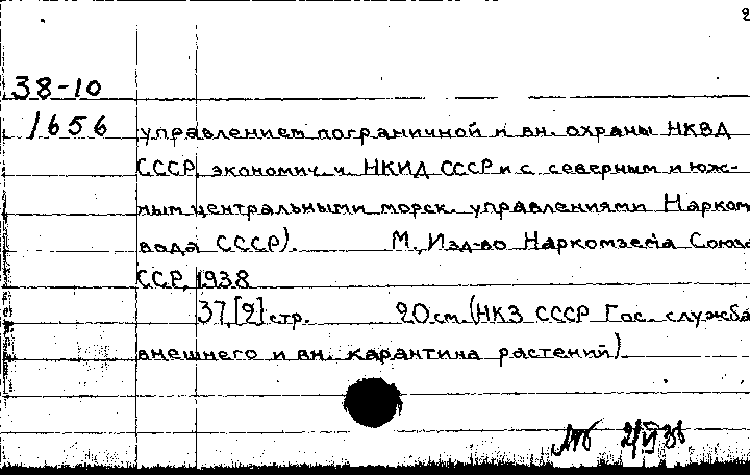 2
38-10
1656 управлением пограничной и вн. охраны НКВД
СССР, экономич. ч. НКИД СССР и с северным и юж-
ным центральными морск. управлениями Нарком
вода СССР). М., Изд-во Наркомзема Союза
ССР, 1938
37,[2] стр. 20 см. (НКЗ СССР Гос. служба
внешнего и вн. карантина растений)